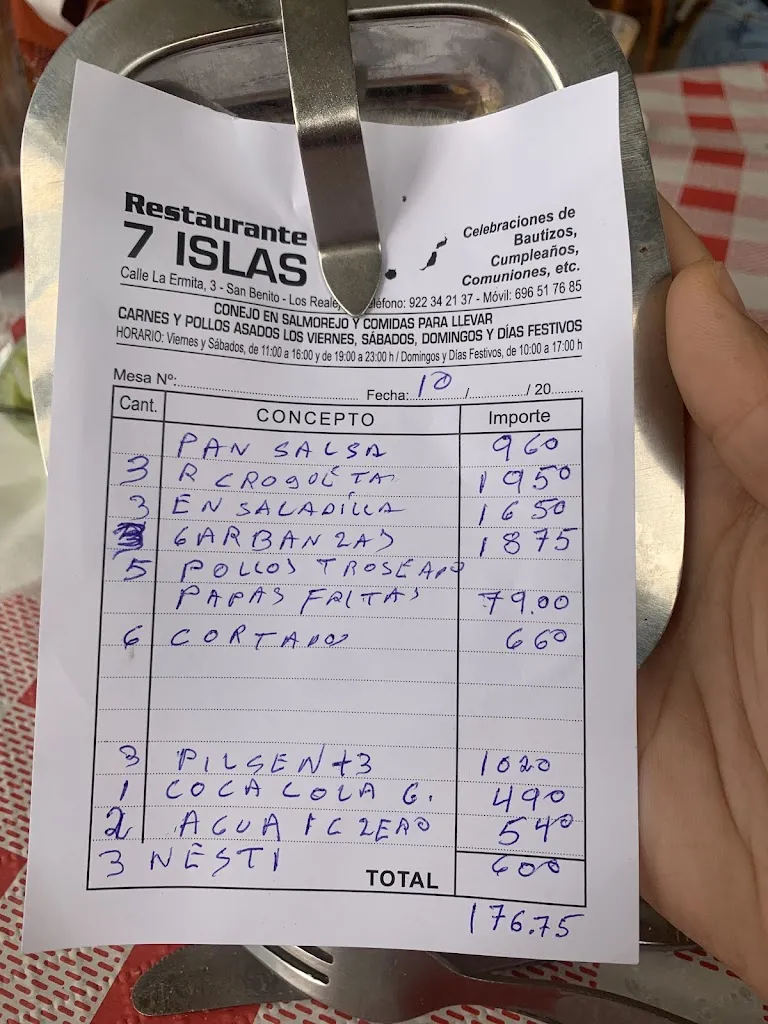 Restaurante
7 ISLAS
Celebraciones de
Bautizos,
Cumpleaños,
Comuniones, etc.
Calle La Ermita, 3 - San Benito - Los Reale eléfono: 922 34 21 37 - Móvil: 696 51 76 85
CONEJO EN SALMOREJO Y COMIDAS PARA LLEVAR
CARNES Y POLLOS ASADOS LOS VIERNES, SÁBADOS, DOMINGOS Y DÍAS FESTIVOS
HORARIO: Viernes y Sábados, de 11:00 a 16:00 y de 19:00 a 23:00 h / Domingos y Días Festivos, de 10:00 a 17:00 h
Mesa Nº: Fecha: 10 / / 20
Cant. CONCEPTO Importe
PAN SALSA 960
3 R CROQUETA 1950
3 ENSALADILLA 1650
3 GARBANZAS 1875
5 POLLOS TROSEADO
PAPAS FRITAS 79.00
6 CORTADO 660
3 PILSEN +3 1020
1 COCA COLA G. 490
2 AGUA 1C ZERO 540
3 NESTI 600
TOTAL
176.75